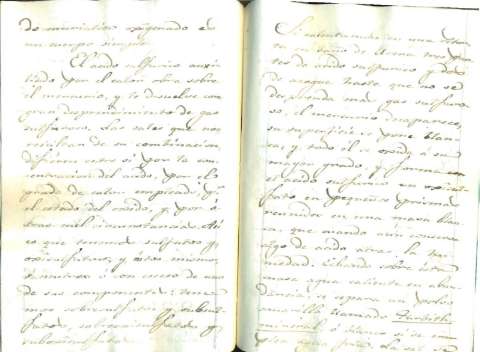 do muriatico oxigenado es
un cuerpo simple.
El acido sulfurico auxi-
liado por el calor obra sobre
el mercurio, y lo disuelve con
gran desprendimiento de gas
sulfuroso. Las sales que nos
resultan de su combinacion
difieren entre si por la con-
centracion del acido, por el
grado de calor empleado, pr.
el estado del oxido, y por o-
tras mil circunstancias. Asi
es que tenemos sulfatos y
oxisulfatos, y estos mismos
neutros o con exceso de uno
de sus componentes: tene-
mos sobresulfatos y subsul-
fatos, sobreoxisulfatos y
suboxisulfatos
Si calentando en una
en baño de arena tres par-
tes de acido sulfurico y dos
de azogue hasta que no se
desprenda mas gas sulfuro-
so, el mercurio desaparece,
su superficie se pone blan-
ca, y todo el se oxida á su
mayor grado, y forma con
el acido sulfurico un oxisul-
fato en pequeños prismas
reunidos en una masa blan-
ca, que
algo de acido atrae la hu-
medad. Echando sobre esta
masa agua caliente en abun-
dancia, se separa un polvo
amarillo llamado Turbith
mineral ó blanco si se em-
plea agua fria. La sal